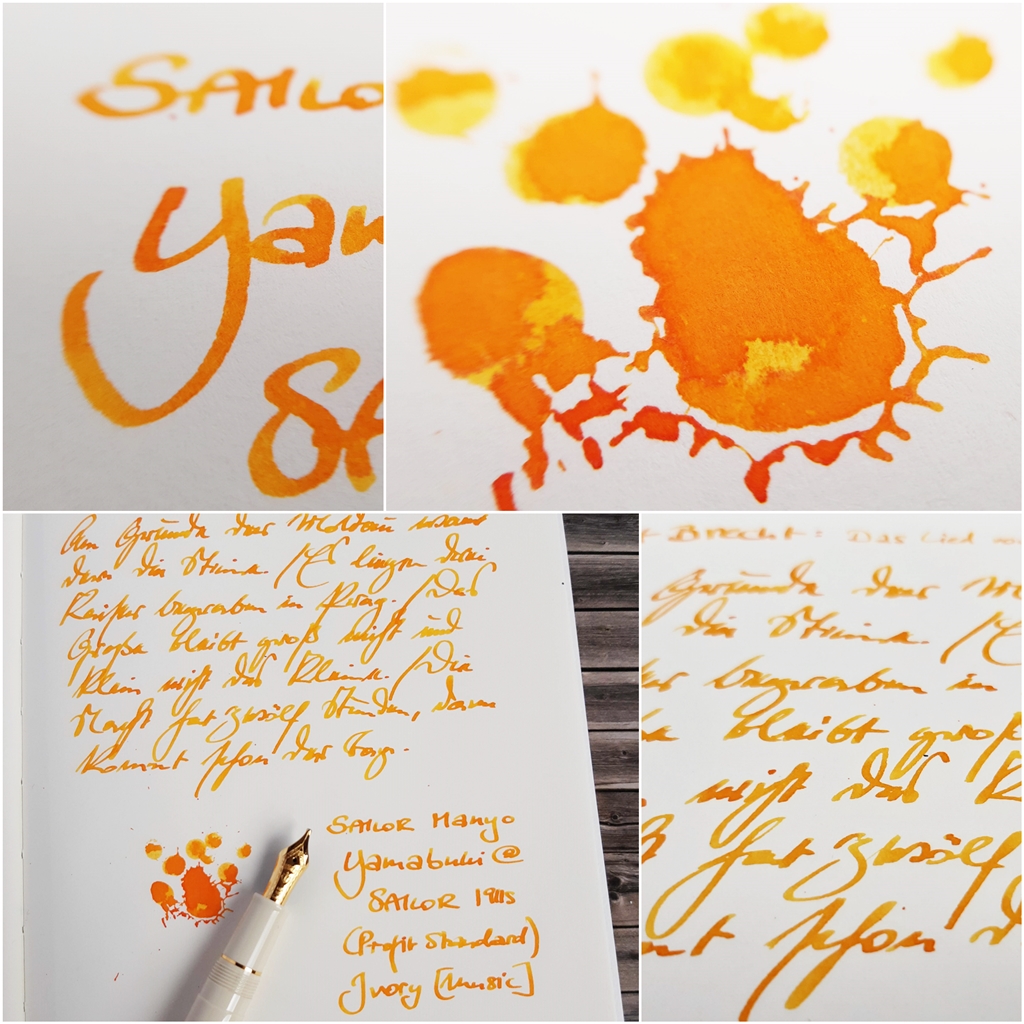 SAILO
Yam
SA
Am Grunde der Moldau wan
dern die Steine. / Es liegen drei
Kaiser begraben in Prag. / Das
Große bleibt groß nicht und
klein nicht das Kleine. / Die
Nacht hat zwölf Stunden, dann
kommt schon der Tag.
SAILOR Manyo
Yamabuki @
SAILOR 1911s
(Profit Standard)
Ivory [Music]
t BRECHT: Das Lied vo
Grunde der Mo
die Steine. / E
ser begraben in
e bleibt groß
nicht das K
t hat zwölf
mt schon d